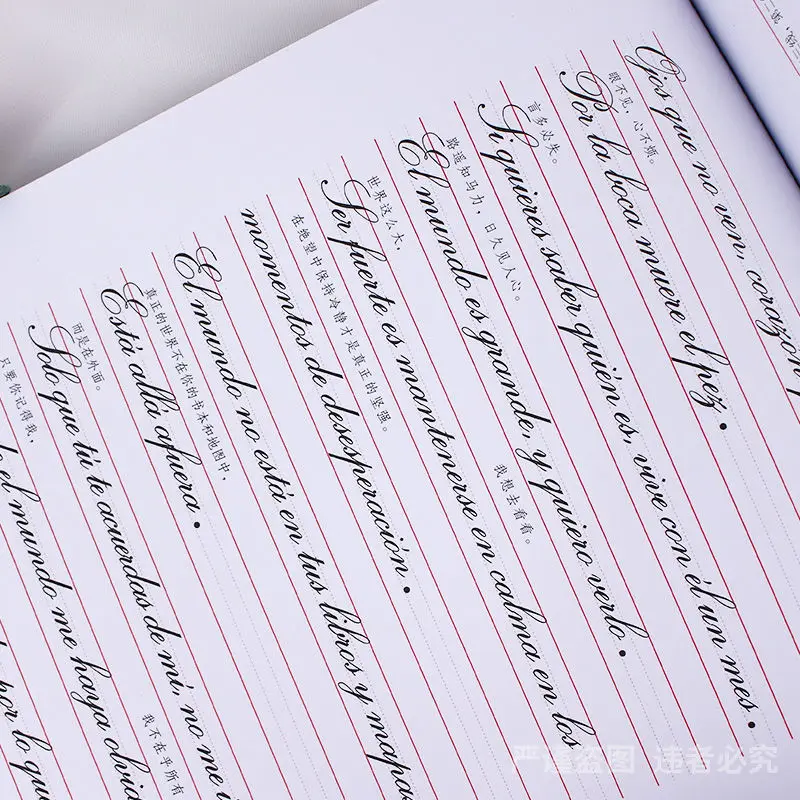 Ojos que no ven, corazón
眼不见，心不烦。
Por la boca muere el pez.
言多必失。
Si quieres saber quién es, vive con él un mes.
路遥知马力，日久见人心。
El mundo es grande, y quiero verlo.
世界这么大， 我想去看看。
Ser fuerte es mantenerse en calma en los
在绝望中保持冷静才是真正的坚强。
momentos de desesperación.
El mundo no está en tus libros y mapas
真正的世界不在你的书本和地图中，
Está allá afuera.
而是在外面。
Solo que tú te acuerdas de mí, no me
只要你记得我， 我不在乎所有
el mundo me haya olvid
por lo que
严谨盗图 违者必究